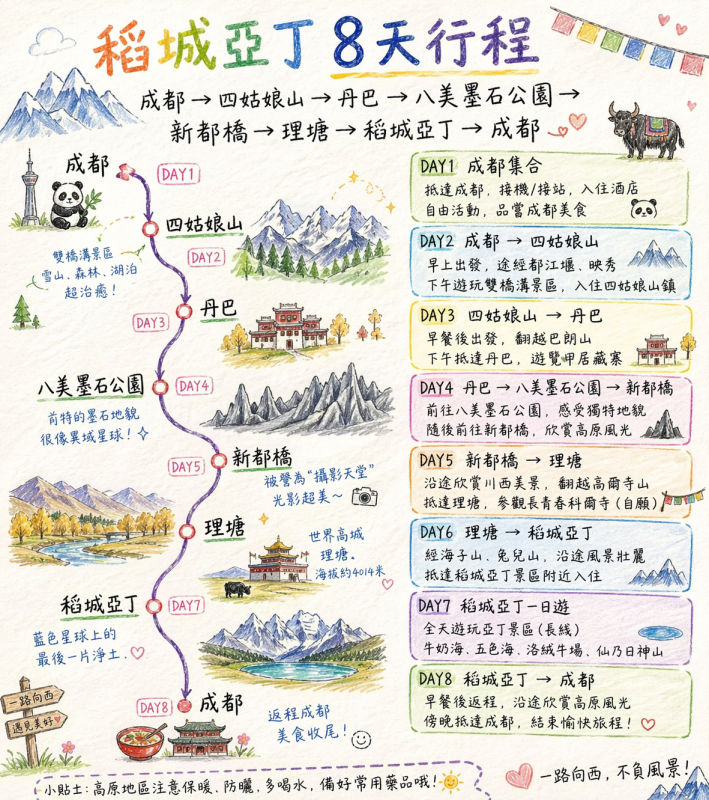 稻城亞丁 8天行程
成都→四姑娘山→丹巴→八美墨石公園→
新都橋→理塘→稻城亞丁→成都
成都
DAY1
四姑娘山
DAY2
雙橋溝景區
雪山、森林、湖泊
超治癒！
丹巴
DAY3
八美墨石公園
DAY4
前特的墨石地貌
很像異域星球！
DAY5
新都橋
被譽為“攝影天堂”
光影超美～
理塘
世界高城
理塘。
海拔約4014米
稻城亞丁
DAY7
藍色星球上的
最後一片淨土.
DAY8
成都
返程成都
美食收尾！
一路向西
遇見美好
DAY1 成都集合
抵達成都，接機/接站，入住酒店
自由活動，品嘗成都美食
DAY2 成都 → 四姑娘山
早上出發，途經都江堰、映秀
下午遊玩雙橋溝景區，入住四姑娘山鎮
DAY3 四姑娘山 → 丹巴
早餐後出發，翻越巴朗山
下午抵達丹巴，遊覽甲居藏寨
DAY4 丹巴 → 八美墨石公園 → 新都橋
前往八美墨石公園，感受獨特地貌
隨後前往新都橋，欣賞高原風光
DAY5 新都橋 → 理塘
沿途欣賞川西美景，翻越高爾寺山
抵達理塘，參觀長青春科爾寺（自願）
DAY6 理塘 → 稻城亞丁
經海子山、兔兒山，沿途風景壯麗
抵達稻城亞丁景區附近入住
DAY7 稻城亞丁一日遊
全天遊玩亞丁景區（長線）
牛奶海、五色海、洛絨牛場、仙乃日神山
DAY8 稻城亞丁 → 成都
早餐後返程，沿途欣賞高原風光
傍晚抵達成都，結束愉快旅程！
小貼士：高原地區注意保暖、防曬、多喝水，備好常用藥品哦！
一路向西，不負風景！